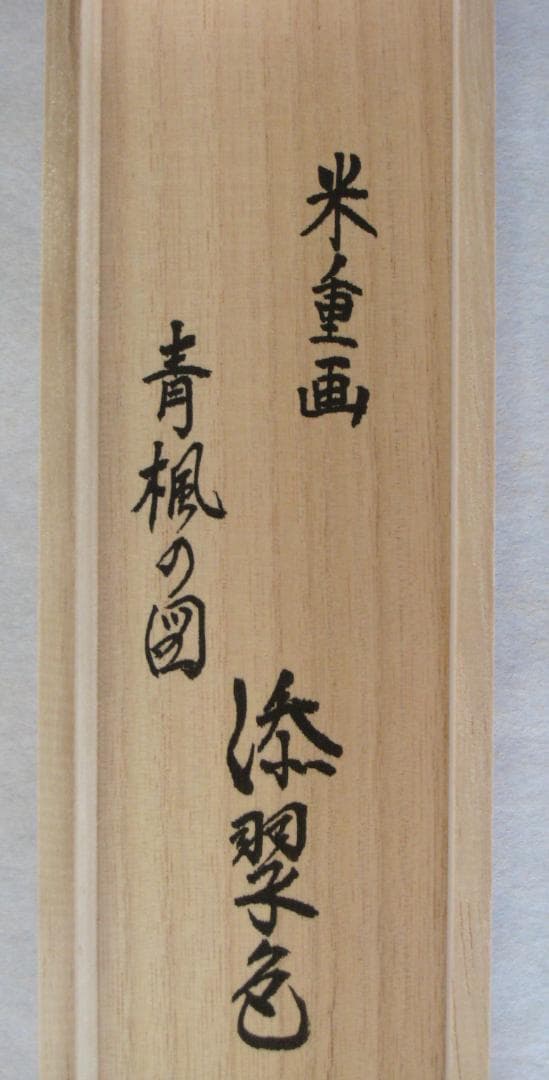 米重画
青楓の図
添翠色